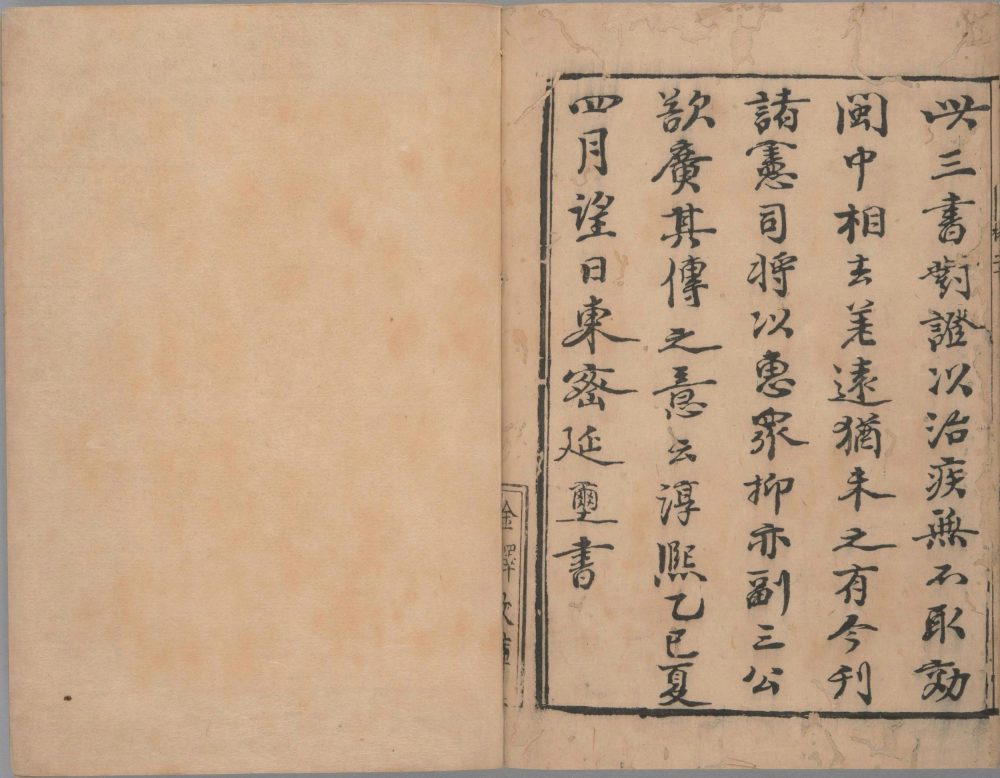 以三書對證以治疾無不取效
閩中相去差遠猶未之有今刊
諸憲司將以惠衆抑亦副三公
欲廣其傳之意云淳熙乙巳夏
四月望日東密延璽書
金澤文庫